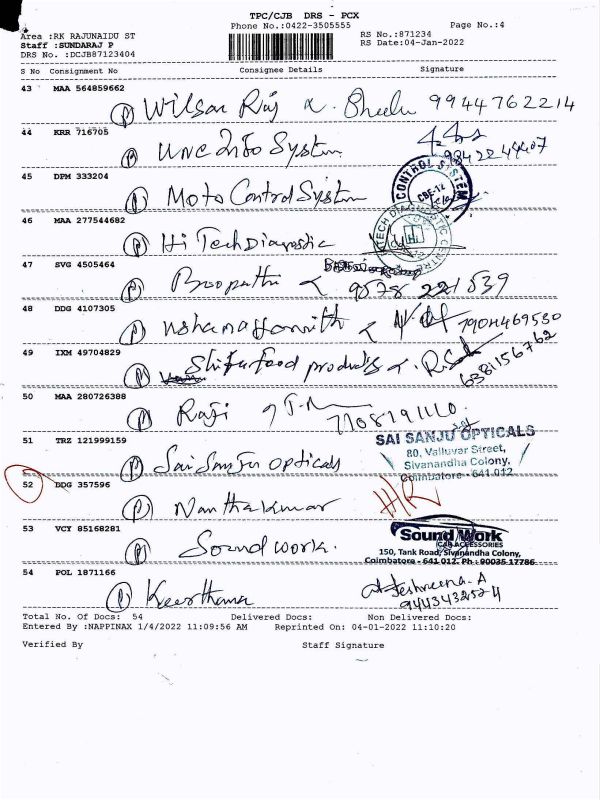 TPC/CJB DRS - PCX
Phone No.:0422-3505555 Page No.:4
Area :RK RAJUNAIDU ST RS No.:871234
Staff :SUNDARAJ P RS Date:04-Jan-2022
DRS No. :DCJB87123404
S No Consignment No Consignee Details Signature
43 MAA 564859662
Wilson Raj 9944762214
44 KRR 716705
UNC Info System
45 DPM 333204
Moto Control System
CONTROL SYSTEM
46 MAA 277544682
Hi Tech Diagnostic
HITECH DIAGNOSTIC CENTRE
47 SVG 4505464
Boopathi
48 DDG 4107305
49 IXM 49704829
food products 6381156762
50 MAA 280726388
Raji
51 TRZ 121999159
Sai Sanju opticals
SAI SANJU OPTICALS
80, Valluvar Street,
Sivanandha Colony,
Coimbatore - 641 012
52 DDG 357596
Nantha kumar
53 VCY 85168281
Sound work.
Sound Work
CAR ACCESSORIES
150, Tank Road, Sivanandha Colony,
Coimbatore - 641 012. Ph : 90035 17786
54 POL 1871166
Keerthana
Total No. Of Docs: 54 Delivered Docs: Non Delivered Docs:
Entered By :NAPPINAX 1/4/2022 11:09:56 AM Reprinted On: 04-01-2022 11:10:20
Verified By Staff Signature